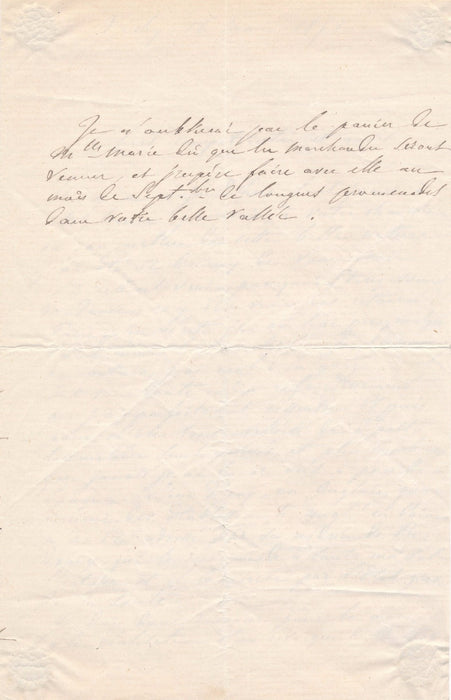 Je n'oublierai pas le panier de
Mlle Marie dès que les marchands seront
venus, et j'espère faire avec elle au
mois de Sept.bre de longues promenades
dans votre belle vallée.